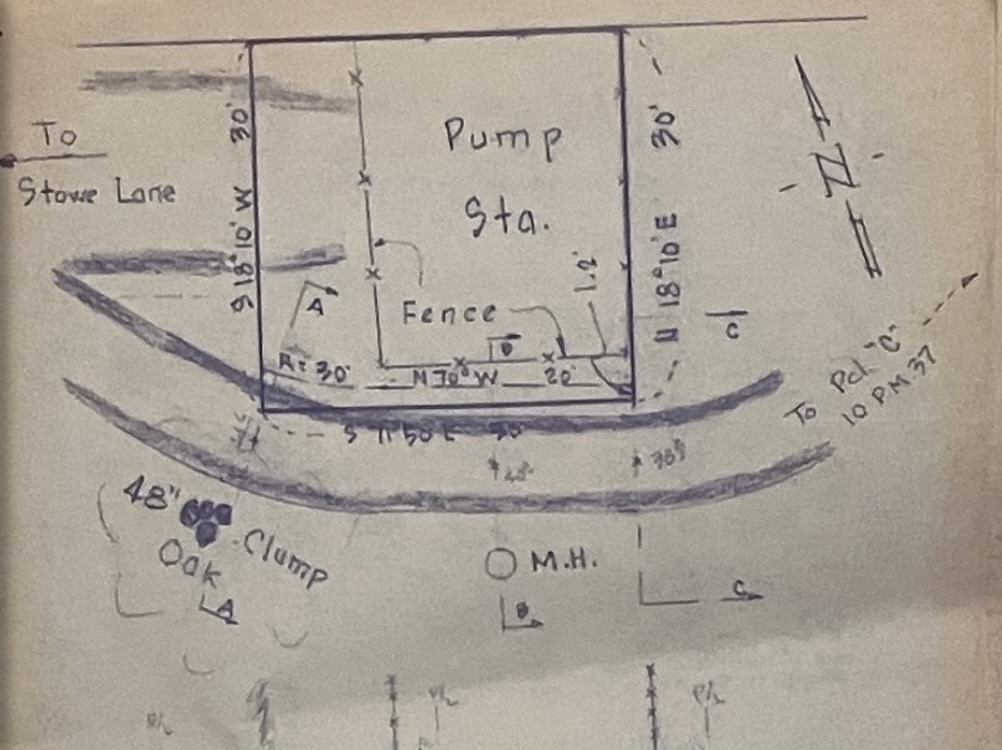 To
Stowe Lane
30'
S 18°10' W
Pump
Sta.
30'
N 18°10' E
1.2'
Fence
A
B
C
R = 30'
N 70° W
20'
S 71°50' E 30'
To Pcl. "C"
10 P.M. 37
48"
Clump
Oak
M.H.
A
B
C
P/L
P/L
P/L